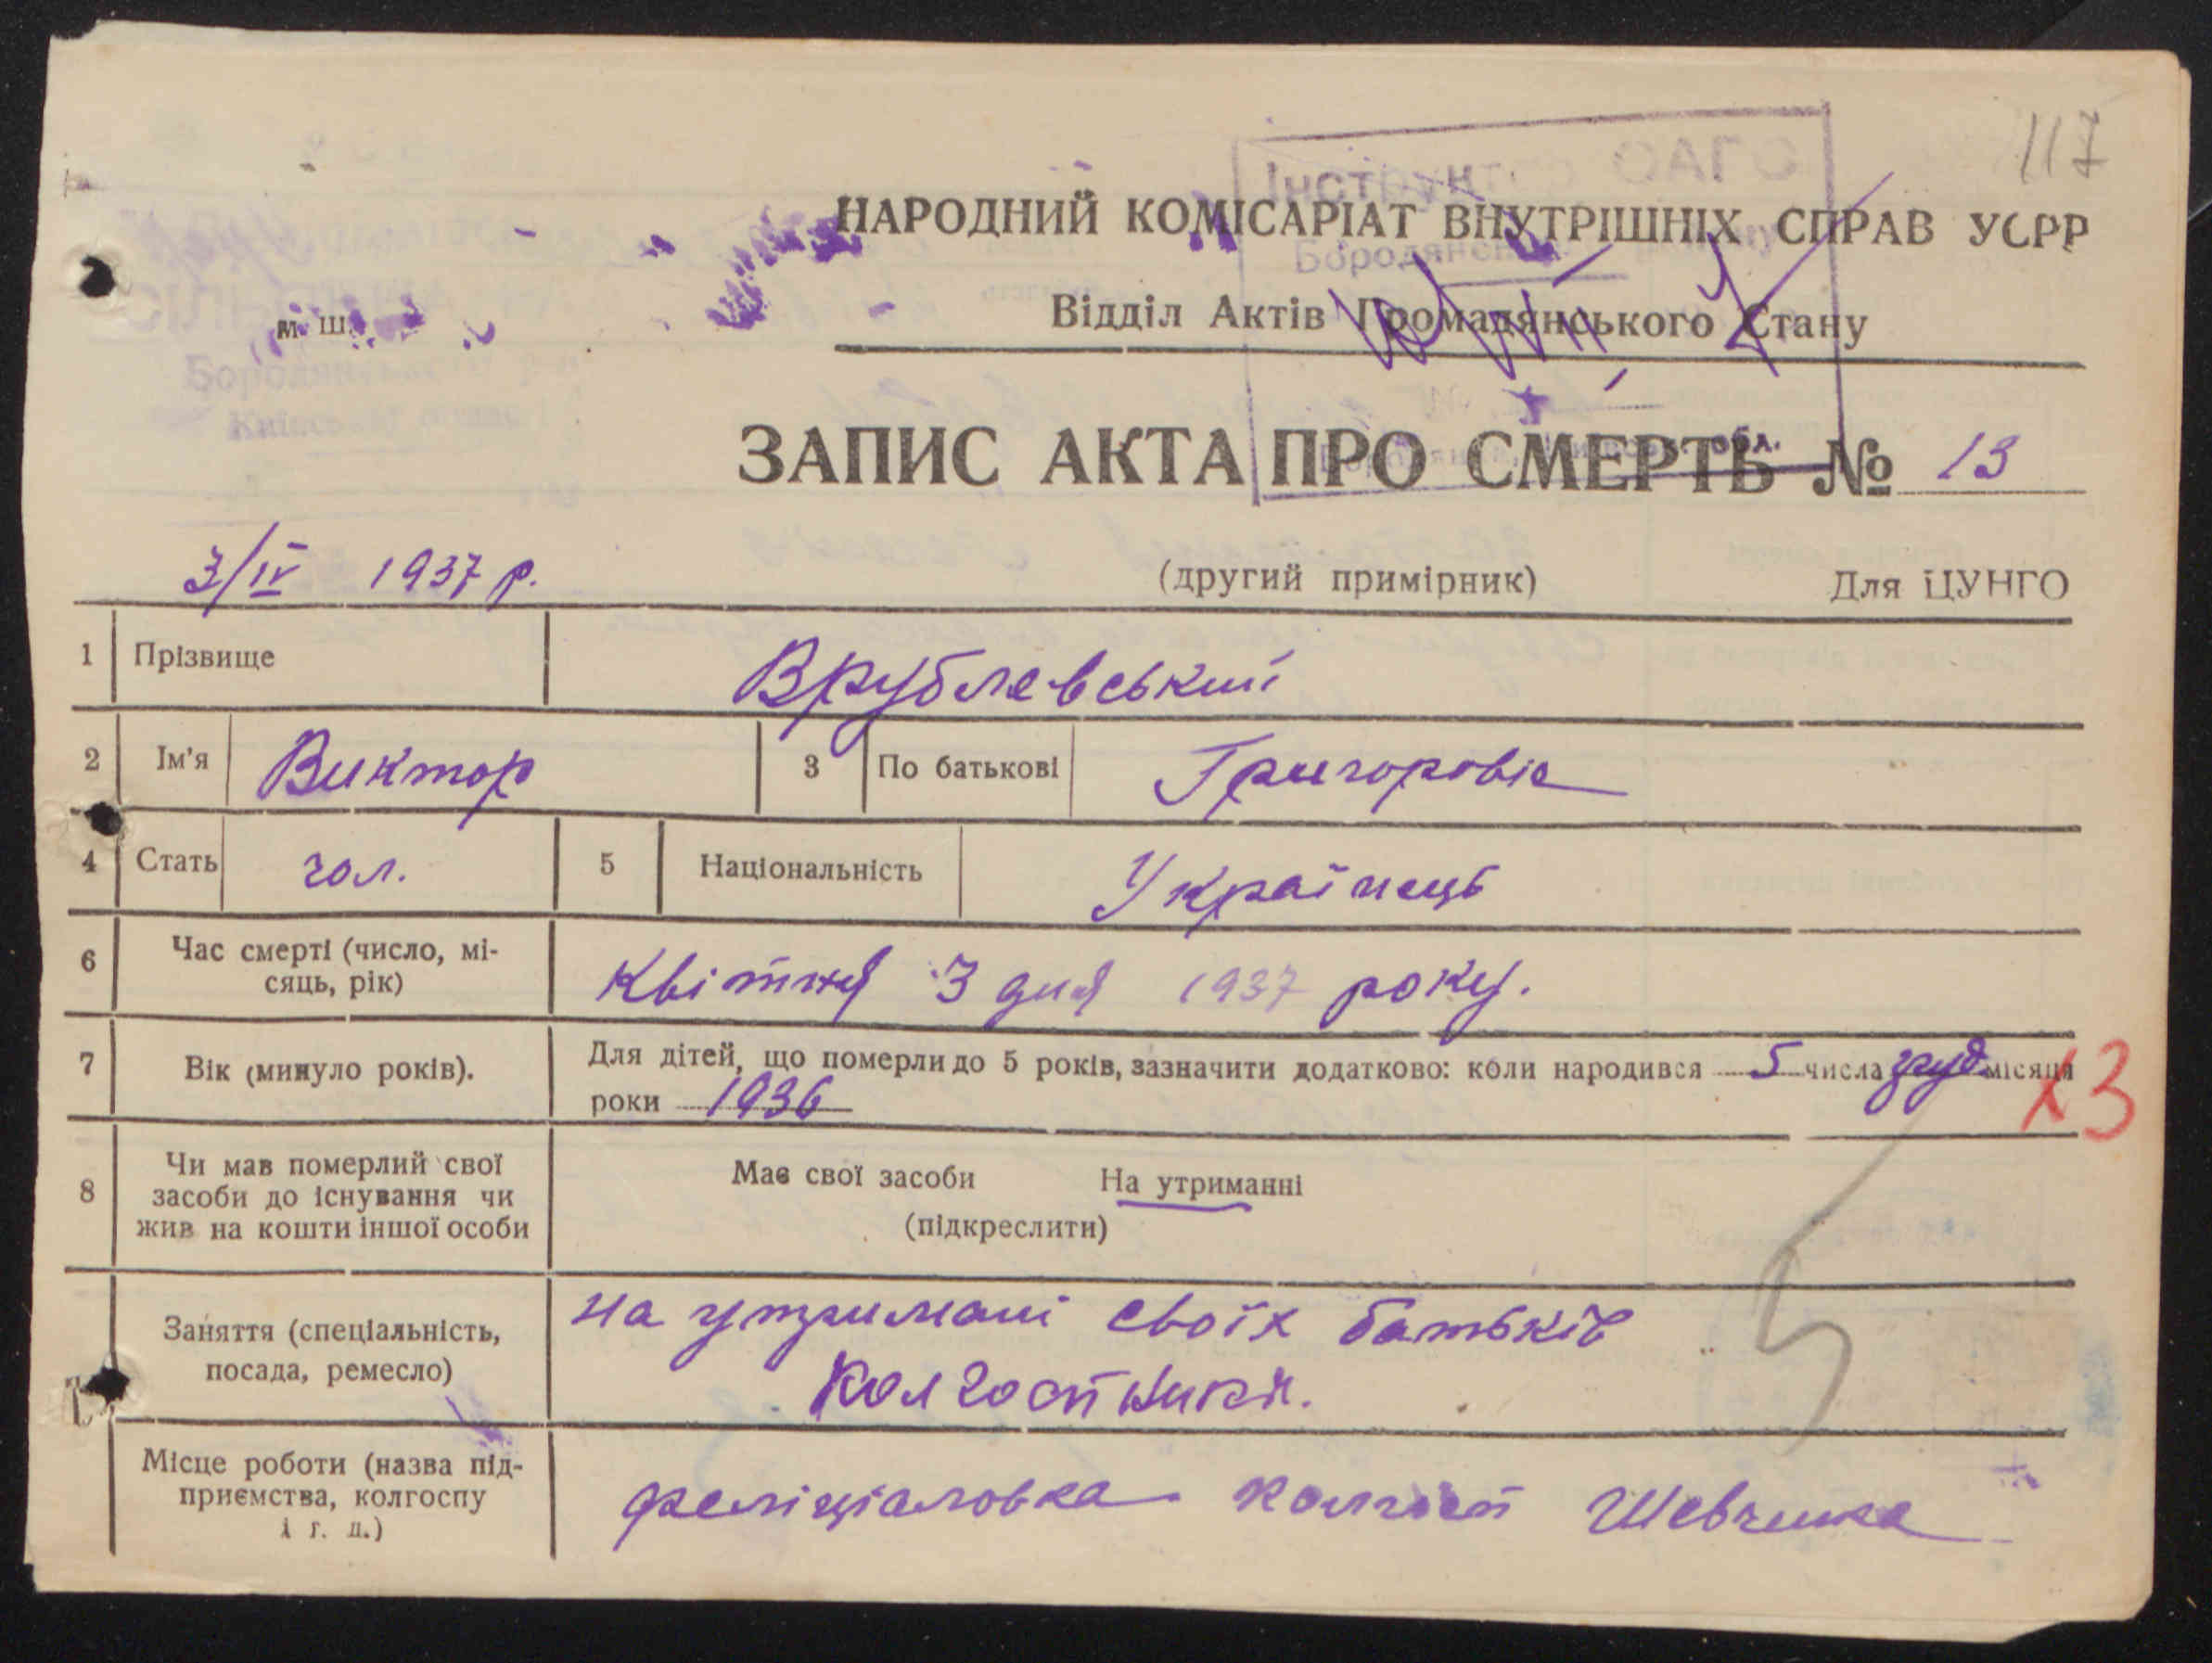 117
НАРОДНИЙ КОМІСАРІАТ ВНУТРІШНІХ СПРАВ УСРР
м. ш.
Відділ Актів Громадянського Стану
ЗАПИС АКТА ПРО СМЕРТЬ № 13
3/IV 1937 р.
(другий примірник) Для ЦУНГО
1 Прізвище Врублевський
2 Ім'я Виктор 3 По батькові Григоровіч
4 Стать чол. 5 Національність Українець
6 Час смерті (число, мі-
сяць, рік) Квітня 3 дня 1937 року.
7 Вік (минуло років). Для дітей, що померли до 5 років, зазначити додатково: коли народився 5 числа груд місяця
роки 1936
13
8 Чи мав померлий свої
засоби до існування чи
жив на кошти іншої особи
Має свої засоби На утриманні
(підкреслити)
Заняття (спеціальність,
посада, ремесло)
на утримані своїх батьків
колгоспники.
Місце роботи (назва під-
приємства, колгоспу
і т. д.)
феліціаловка колгосп Шевченка